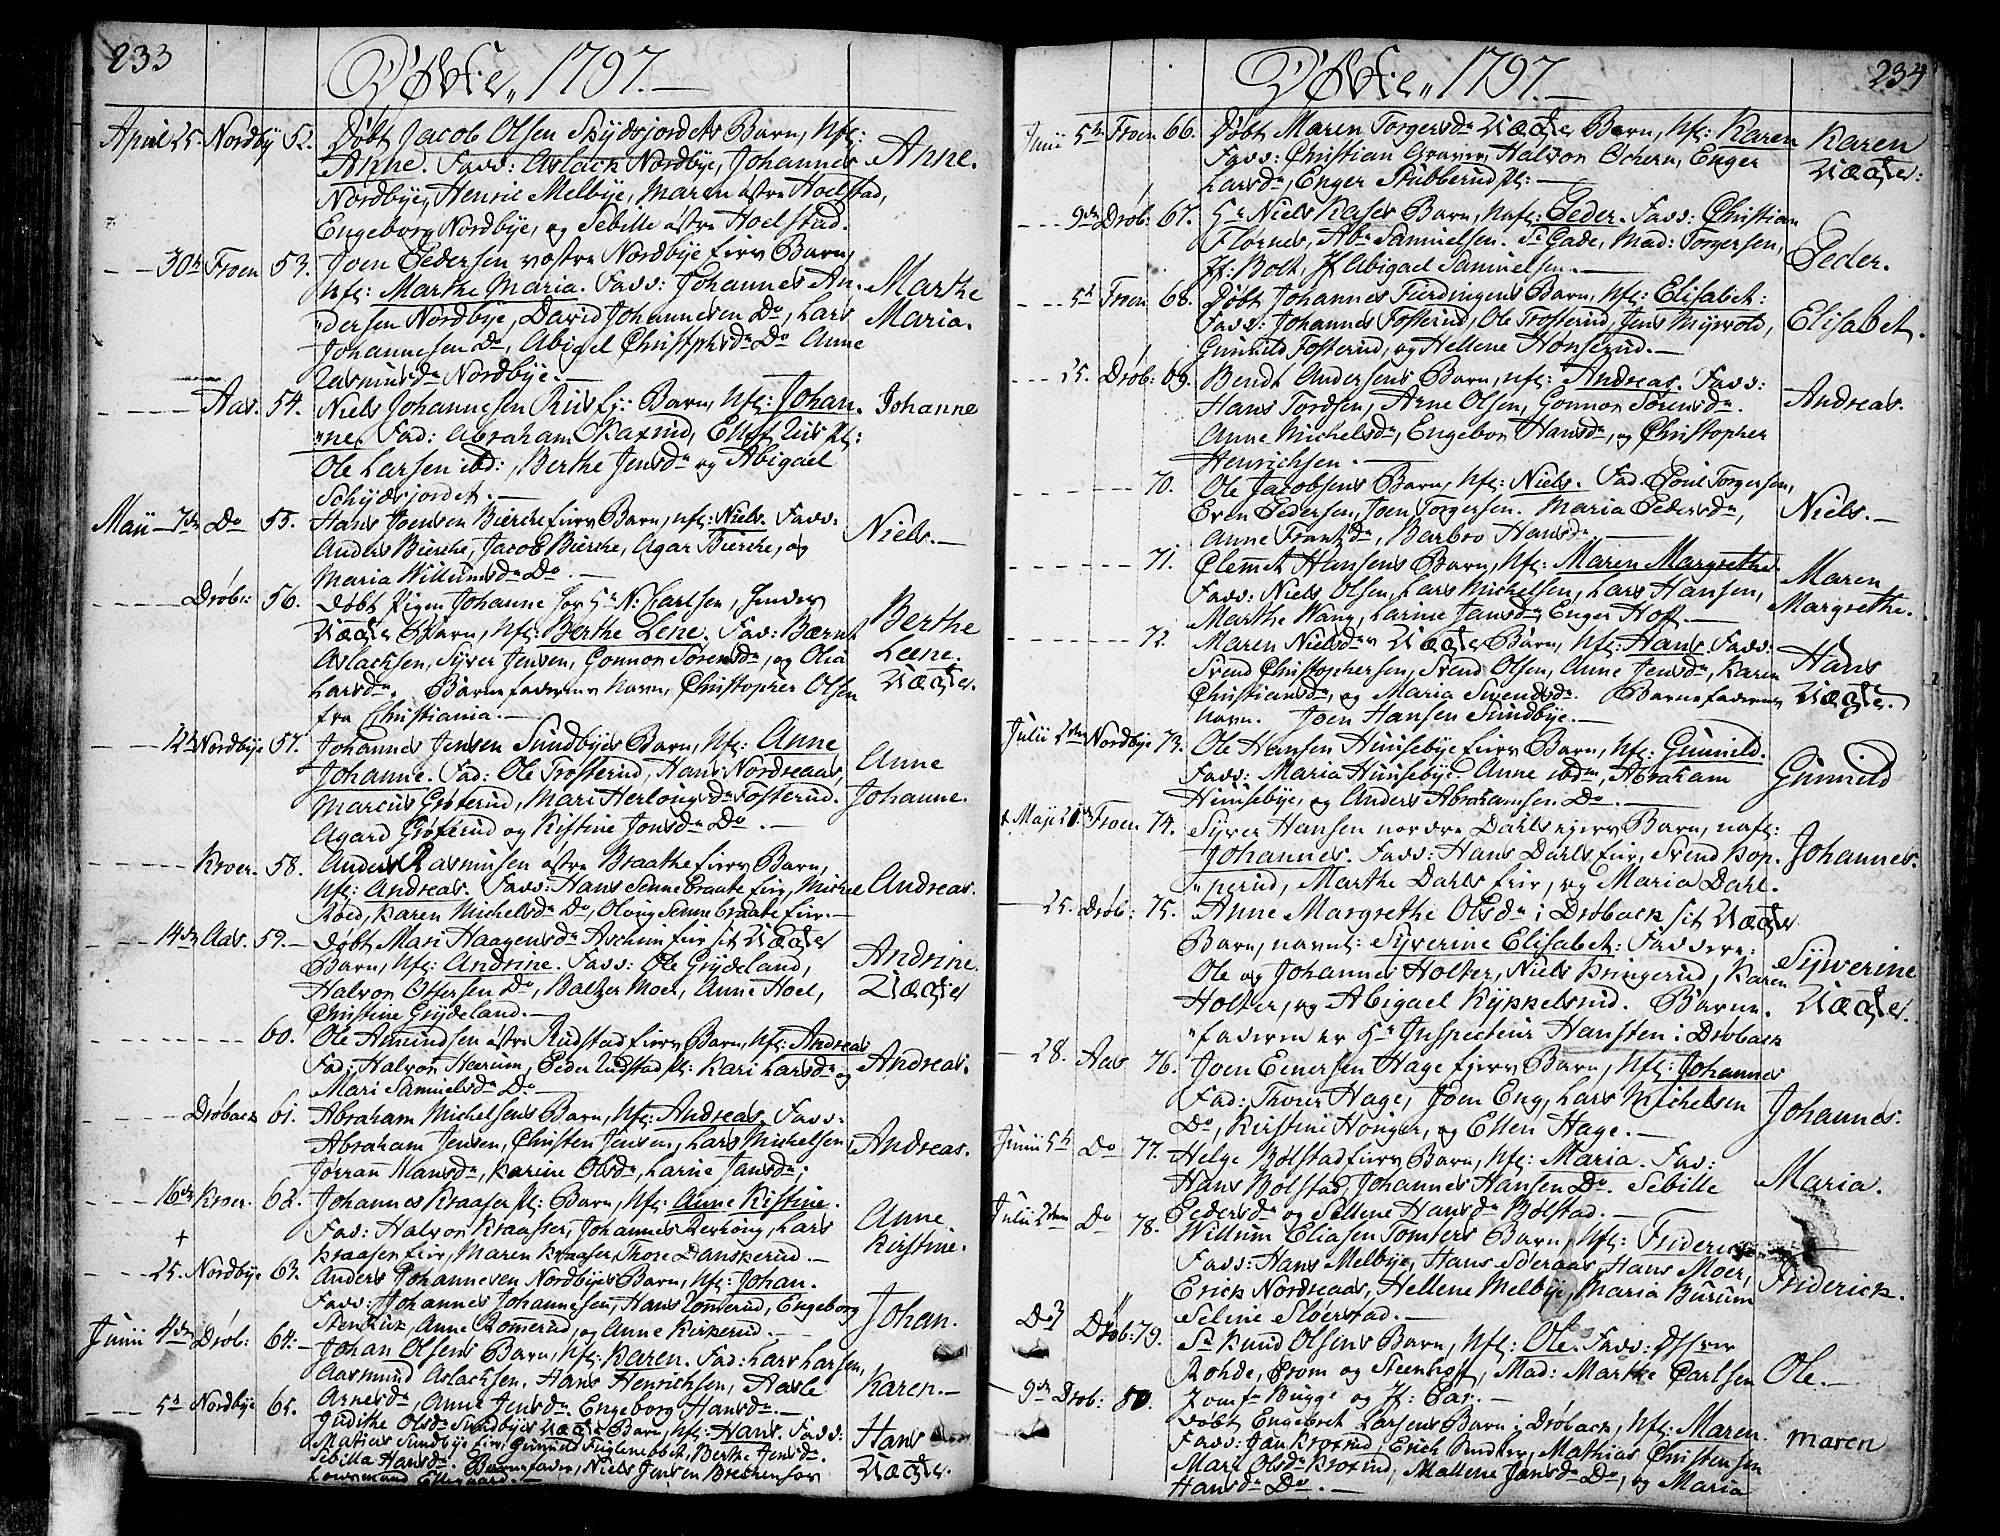 233
Døbte 1797.
April 25. Nordby 52. Døbt Jacob Olsen Skydsjordets Barn, Nfl:
Anne. Fads: Aslack Nordbye, Johannes
Nordbye, Henrie Melbye, Maren østre Hoelstad,
Engeborg Nordbye, og Sebille østre Hoelstad.
Anne.
30te Froen 53. Joen Pedersen vestre Nordbye eiers Barn,
Nfl: Marthe Maria. Fads: Johannes An-
dersen Nordbye, David Johannesen Do, Lars
Johannesen Do, Abigel Christphsdr Do Anne
Rasmusdr Nordbye.
Marthe
Maria.
Aas. 54. Niels Johannesen Riis ej: Barn, Nfl: Johan-
ne. Fad: Abraham Skaxrud, Ellef Riis pl:
Ole Larsen ibd:, Berthe Jensdr og Abigael
Schydsjordet.
Johanne
Maji 7de Do 55. Hans Joensen Bierche eiers Barn, nfl: Niels. Fads:
Anders Bierche, Jacob Bierche, Agar Bierche, og
Maria Willumsdr Do.
Niels.
Drøb: 56. Døbt Pigen Johanne hos Hr N: Carlsen, hendes
uægte Barn, Nfl: Berthe Lene. Fads: Bærnt
Aslachsen, Syver Jensen, Gonnor Sørensdr, og Olia
Larsdr. Barnefaderens Navn, Christopher Olsen
fra Christiania.
Berthe
Leene.
Uægte.
12te Nordbye 57. Johannes Jensen Sundbyes Barn, Nfl: Anne
Johanne. Fad: Ole Trosterud, Hans Nordreaas,
Marcus Grøterud, Mari Herlougsdr Fosterud.
Agard Grøterud og Kistine Jonsdr Do.
Anne
Johanne.
Kroer. 58. Anders Rasmusen østre Braathe eiers Barn,
Nfl: Andreas. Fads: Hans Sønnebraate eier, Michel
Røed, Karen Michelsdr Do, Oloug Sønnebraate eier.
Andreas.
14de Aas. 59. Døbt Mari Haagensdr Aschim eier sit uægte
Barn, Nfl: Andrine. Fads: Ole Grydeland,
Halvor Ottersen Do, Baltzer Moer, Anne Hoel,
Christine Grydeland.
Andrine.
Uægte
60. Ole Amundsen østre Rudstad eiers Barn, Nfl: Andreas
Fad: Halvor Haxum, Peder Rudstad pl: Kari Larsdr og
Mari Samuelsdr Do.
Andreas.
Drøback 61. Abraham Michelsens Barn, Nfl: Andreas. Fads:
Abraham Jensen, Christen Jensen, Lars Michelsen,
Jorran Mansdr, Karine Olsdr, Larine Jansdr.
Andreas.
16de Kroer. 62. Johannes Kraaser pl: Barn, Nfl: Anne Kistine.
Fad: Halvor Kraaser, Johannes Rerkong, Lars
Kraaser eier, Maren Kraaser, Thore Danskerud.
Anne
Kistine.
+
25. Nordbye 63. Anders Johannesen Nordbyes Barn, Nfl: Johan.
Fads: Johannes Johannesen, Hans Romerud, Engeborg
Stenbrek, Anne Romerud, og Anne Kirkerud.
Johan.
Junii 4de Drøb: 64. Johan Olsens Barn, Nfl: Karen. Fad: Lars Larsen,
Aasmund Aslachsen, Hans Henrichsen, Aasle
Arnesdr, Anne Jensdr. Engeborg Hansdr.
Karen.
5te Nordbye 65. Judithe Olsdr Sundbyes uægte Barn, Nfl: Hans. Fads:
Matias Sundbye eier, Gunnild Fuglenebbet, Berthe Jensdr.
Sebilla Hansdr. Barnefader, Niels Jensen
Hans
Uægte.
234
Døbte 1797.
Junii 5te Froen 66. Døbt Maren Torgersdr uægte Barn, Nfl: Karen
Fads: Christian Graver, Halvor Ochern, Enger
Larsdr, Enger Stubberud pl:
Karen
Uægte.
9de Drøb: 67. Hr Niels Kases Barn, Nafl: Peder. Fads: Christian
Flornes, Abr Samuelsen. Sr Gade, Mad: Torgersen,
Jf: Bolt, Jf Abigael Samuelsen.
Peder.
5te Froen 68. Døbt Johannes Fierdingens Barn, Nfl: Elisabet:
Fads: Johannes Fosterud, Ole Trosterud, Jens Myrvold,
Gunnild Fosterud, og Hellene Honserud.
Elisabet.
25. Drøb: 69. Bendt Andersens Barn, nfl: Andreas. Fads:
Hans Tordsen, Arne Olsen, Gonnor Sørensdr.
Anne Michelsdr, Engebor Hansdr, og Christopher
Henrichsen.
Andreas.
70. Ole Jacobsens Barn, Nfl: Niels. Fad. Poul Torgersen,
Even Pedersen, Joen Torgersen. Maria Pedersdr,
Anne Frantzdr, Barbro Hansdr.
Niels.
71. Clemet Hansens Barn, Nfl: Maren Margrethe.
Fads: Niels Olsen, Lars Michelsen, Lars Hansen,
Marthe Wang, Larine Jansdr, Enger Hoff.
Maren
Margrethe.
72. Maren Nielsdrs uægte Barn, Nfl: Hans. Fads:
Svend Christophersen, Svend Olsen, Anne Jensdr, Karen
Christiansdr, og Maria Svendsdr. Barnefaderens
Navn. Joen Hansen Sundbye.
Hans
Uægte.
Julii 2den Nordbye 73. Ole Hansen Huusebye eiers Barn, Nfl: Gunnild.
Fads: Maria Huusebye. Anne ibdm, Abraham
Huusebye, og Anders Abrahamsen Do.
Gunnild
+ Maji 21de Froen 74. Syver Hansen nordre Dahls ejers Barn, nafl:
Johannes. Fads: Hans Dahls eier, Svend Kop-
perud, Marthe Dahls eier, og Maria Dahl.
Johannes.
25. Drøb: 75. Anne Margrethe Olsdr i Drøback sit uægte
Barn, navnl: Syverine Elisabet: Faddere:
Ole og Johannes Holter, Niels Kringerud, Karen
Holter, og Abigael Kykkelsrud. Barne-
faderen er Hr Inspecteur Hansten i Drøback
Syverine
Uægte.
28. Aas 76. Joen Eenersen Hage ejers Barn, Nfl: Johannes
Fad: Thorer Hage, Joen Eng, Lars Michelsen
Do, Kirstine Honger, og Ellen Hage.
Johannes.
Junii 5te Do 77. Helge Bølstad eiers Barn, Nfl: Maria. Fad:
Hans Bølstad, Johannes Hansen Do. Sebille
Pedersdr og Sellene Hansdr Bølstad.
Maria.
Julii 2den Do 78. Willum Eliasen Tomters Barn, Nfl: Friderick
Fads: Hans Melbye, Hans Søeraas, Hans Moer,
Erick Nordreaas, Hellene Melbye, Maria Burum
Seline Sloerstad.
Friderick.
Do Drøb: 79. Sr Knud Olsens Barn, Nfl: Ole. Fads: DHrer
Rohde, Prom og Steenhoff, Mad: Marthe Carlsen
Jomfr Bugge og Jf: Car.
Ole.
9de Drøb: 80. Døbt Engebret Larsens Barn i Drøback, Nfl: Maren.
Fads: Jan Kroxrud, Erich, Mathias Christensen
Mari Olsdr Kroxrud, Mallene Jansdr Do, og Maria
Hansdr Do.
Maren